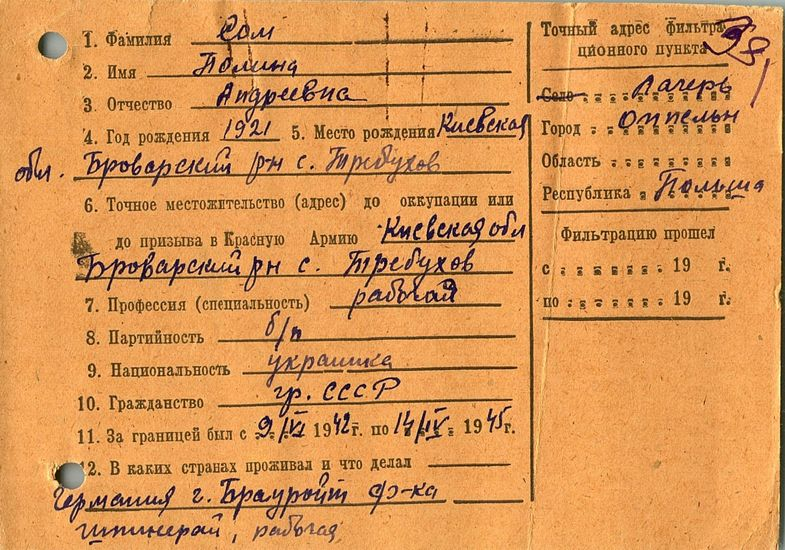 1. Фамилия Сом
2. Имя Полина
3. Отчество Андреевна
4. Год рождения 1921 5. Место рождения Киевская
обл. Броварский рн с. Требухов
6. Точное местожительство (адрес) до оккупации или
до призыва в Красную Армию Киевская обл
Броварский рн с. Требухов
7. Профессия (специальность) рабочая
8. Партийность б/п
9. Национальность украинка
10. Гражданство гр. СССР
11. За границей был с 9/VI 1942 г. по 14/IV 1945 г.
12. В каких странах проживал и что делал
Германия г. Брауройт ф-ка
Шпинерай, рабочая
Точный адрес фильтра
ционного пункта
Село лагерь
Город Оппельн
Область
Республика Польша
Фильтрацию прошел
с 19 г.
по 19 г.